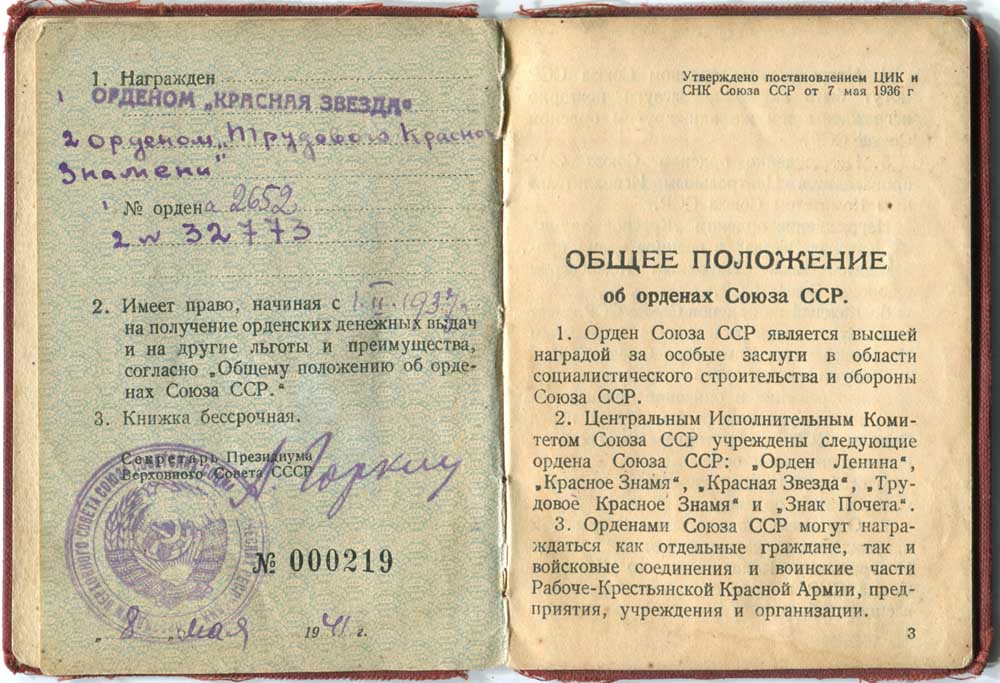 1. Награжден
1 ОРДЕНОМ „КРАСНАЯ ЗВЕЗДА“
2 орденом „Трудового Красного
Знамени“
1 № ордена 2652
2 № 32773
2. Имеет право, начиная с 1.II.1937г.
на получение орденских денежных выдач
и на другие льготы и преимущества,
согласно „Общему положению об орде-
нах Союза ССР.“
3. Книжка бессрочная.
Секретарь Президиума
Верховного Совета СССР
А. Горкин
№ 000219
„ 8 „ мая 1941 г.
Утверждено постановлением ЦИК и
СНК Союза ССР от 7 мая 1936 г
ОБЩЕЕ ПОЛОЖЕНИЕ
об орденах Союза ССР.
1. Орден Союза ССР является высшей
наградой за особые заслуги в области
социалистического строительства и обороны
Союза ССР.
2. Центральным Исполнительным Коми-
тетом Союза ССР учреждены следующие
ордена Союза ССР: „Орден Ленина“,
„Красное Знамя“, „Красная Звезда“, „Тру-
довое Красное Знамя“ и „Знак Почета“.
3. Орденами Союза ССР могут награ-
ждаться как отдельные граждане, так и
войсковые соединения и воинские части
Рабоче-Крестьянской Красной Армии, пред-
приятия, учреждения и организации.
3